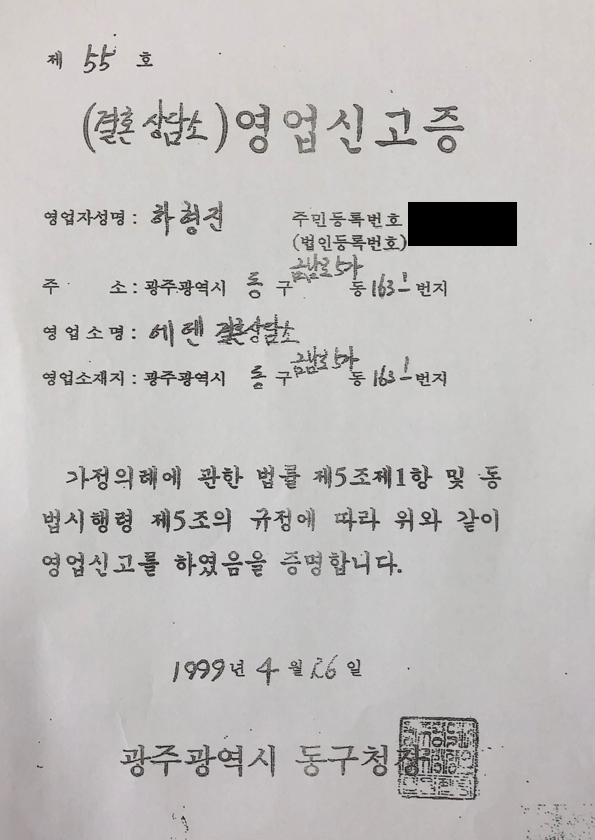 제 55 호
(결혼상담소)영업신고증
영업자성명 : 하형진 주민등록번호
(법인등록번호)
주 소 : 광주광역시 동 구 금남로5가 동 163-1 번지
영업소명 : 에덴 결혼상담소
영업소재지 : 광주광역시 동 구 금남로5가 동 163-1 번지
가정의례에 관한 법률 제5조제1항 및 동
법시행령 제5조의 규정에 따라 위와 같이
영업신고를 하였음을 증명합니다.
1999년 4월 26일
광주광역시 동구청장